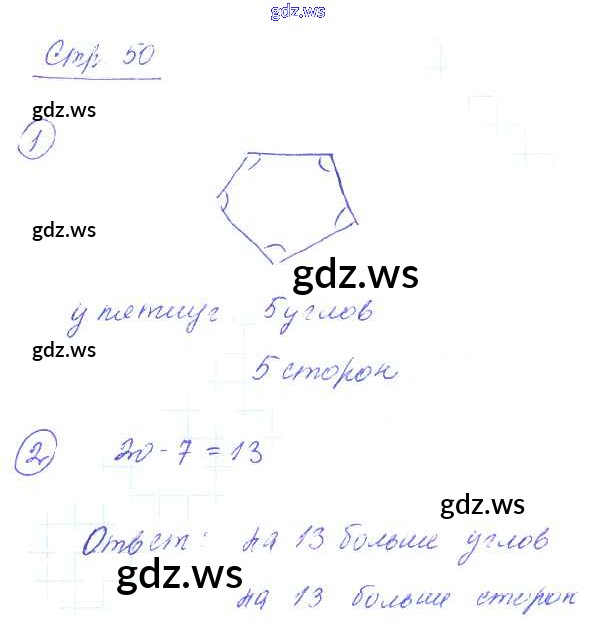 gdz.ws
Стр. 50
gdz.ws
1
gdz.ws
gdz.ws
у пятиуг. 5 углов
gdz.ws
5 сторон
2 20 - 7 = 13
gdz.ws
Ответ: на 13 больше углов
gdz.ws
на 13 больше сторон